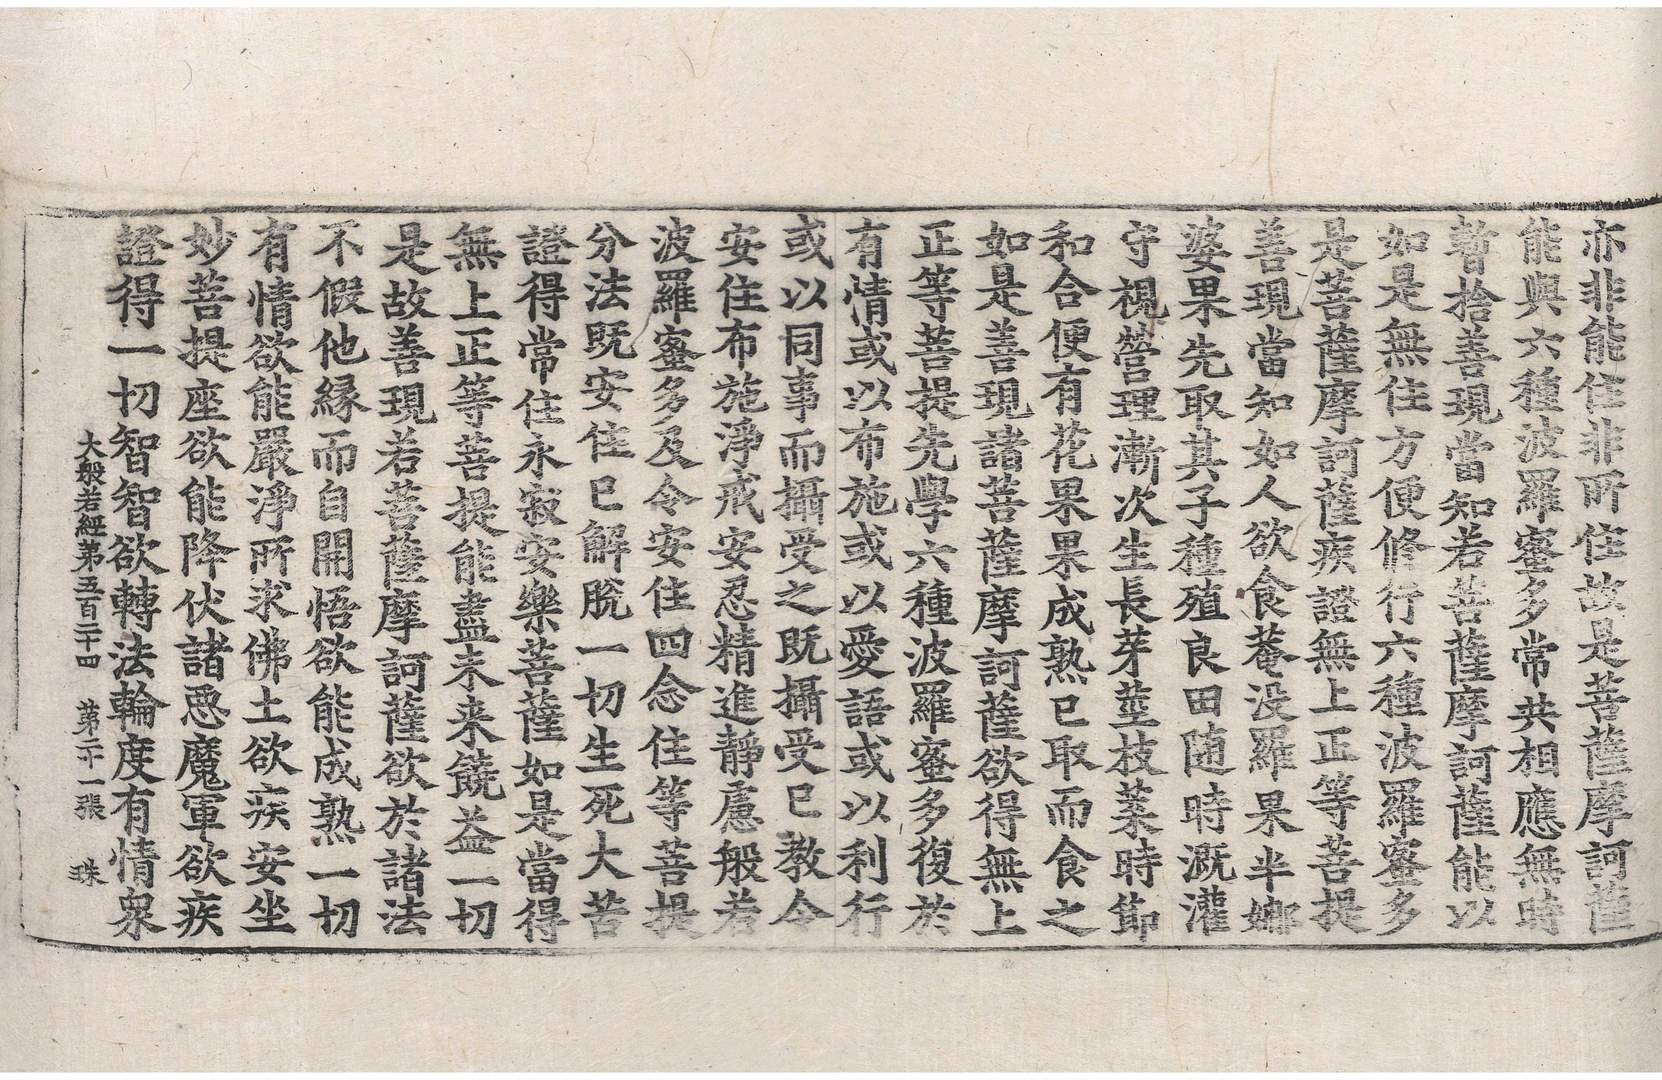 亦非能住非所住故是菩薩摩訶薩
能與六種波羅蜜多常共相應無時
暫捨善現當知若菩薩摩訶薩能以
如是無住方便修行六種波羅蜜多
是菩薩摩訶薩疾證無上正等菩提
善現當知如人欲食菴没羅果半娜
婆果先取其子種殖良田随時溉灌
守視營理漸次生長芽莖枝葉時節
和合便有花果果成熟已取而食之
如是善現諸菩薩摩訶薩欲得無上
正等菩提先學六種波羅蜜多復於
有情或以布施或以愛語或以利行
或以同事而攝受之既攝受已教令
安住布施淨戒安忍精進靜慮般若
波羅蜜多及令安住四念住等菩提
分法既安住已解脫一切生死大苦
證得常住永寂安樂菩薩如是當得
無上正等菩提能盡未来饒益一切
是故善現若菩薩摩訶薩欲於諸法
不假他縁而自開悟欲能成熟一切
有情欲能嚴淨所求佛土欲疾安坐
妙菩提座欲能降伏諸惡魔軍欲疾
證得一切智智欲轉法輪度有情衆
大般若經第五百二十四 第二十一張 珠